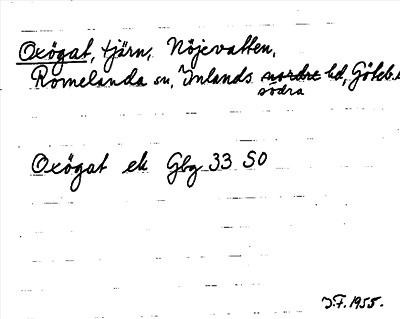 Oxögat, tjärn, Nöjevatten,
Romelanda sn, Inlands nordre hd, Göteb.
södra
Oxögat ek Gbg 33 SO
J.F. 1955.